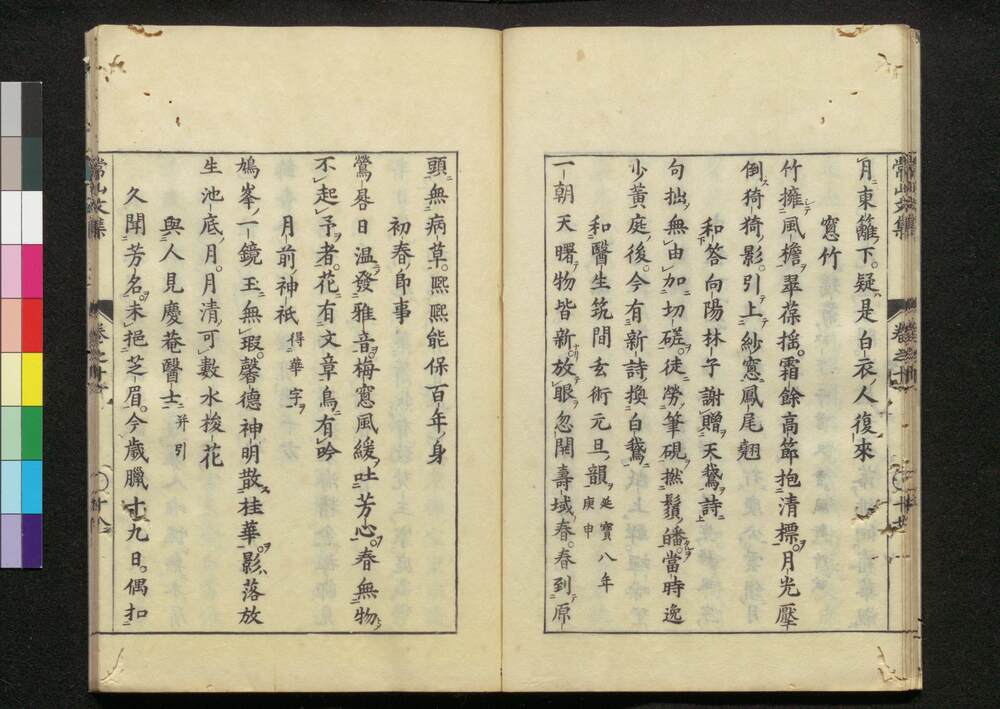 月東籬下疑是白衣人復來
窓竹
竹擁風檐翠葆搖霜餘高節抱清標月光壓
倒猗猗影引上紗窓鳳尾翹
和答向陽林子謝贈天鵞詩
句拙無由加切磋徒勞筆硯撚鬚皤當時逸
少黄庭後今有新詩換白鵞
和醫生筑間玄術元旦韻延寶八年庚申
一朝天曙物皆新放眼忽開壽域春春到原
頭無病草熙熙能保百年身
初春即事
鶯唇日温發雅音梅窓風緩吐芳心春無物
不起予者花有文章鳥有吟
月前神祇得華字
鳩峯一鏡玉無瑕馨德神明散桂華影落放
生池底月月清可數水梭花
與人見慶菴醫士并引
久聞芳名未挹芝眉今歲臘十九日偶扣
常山文集
卷之十
常山文集
卷之十